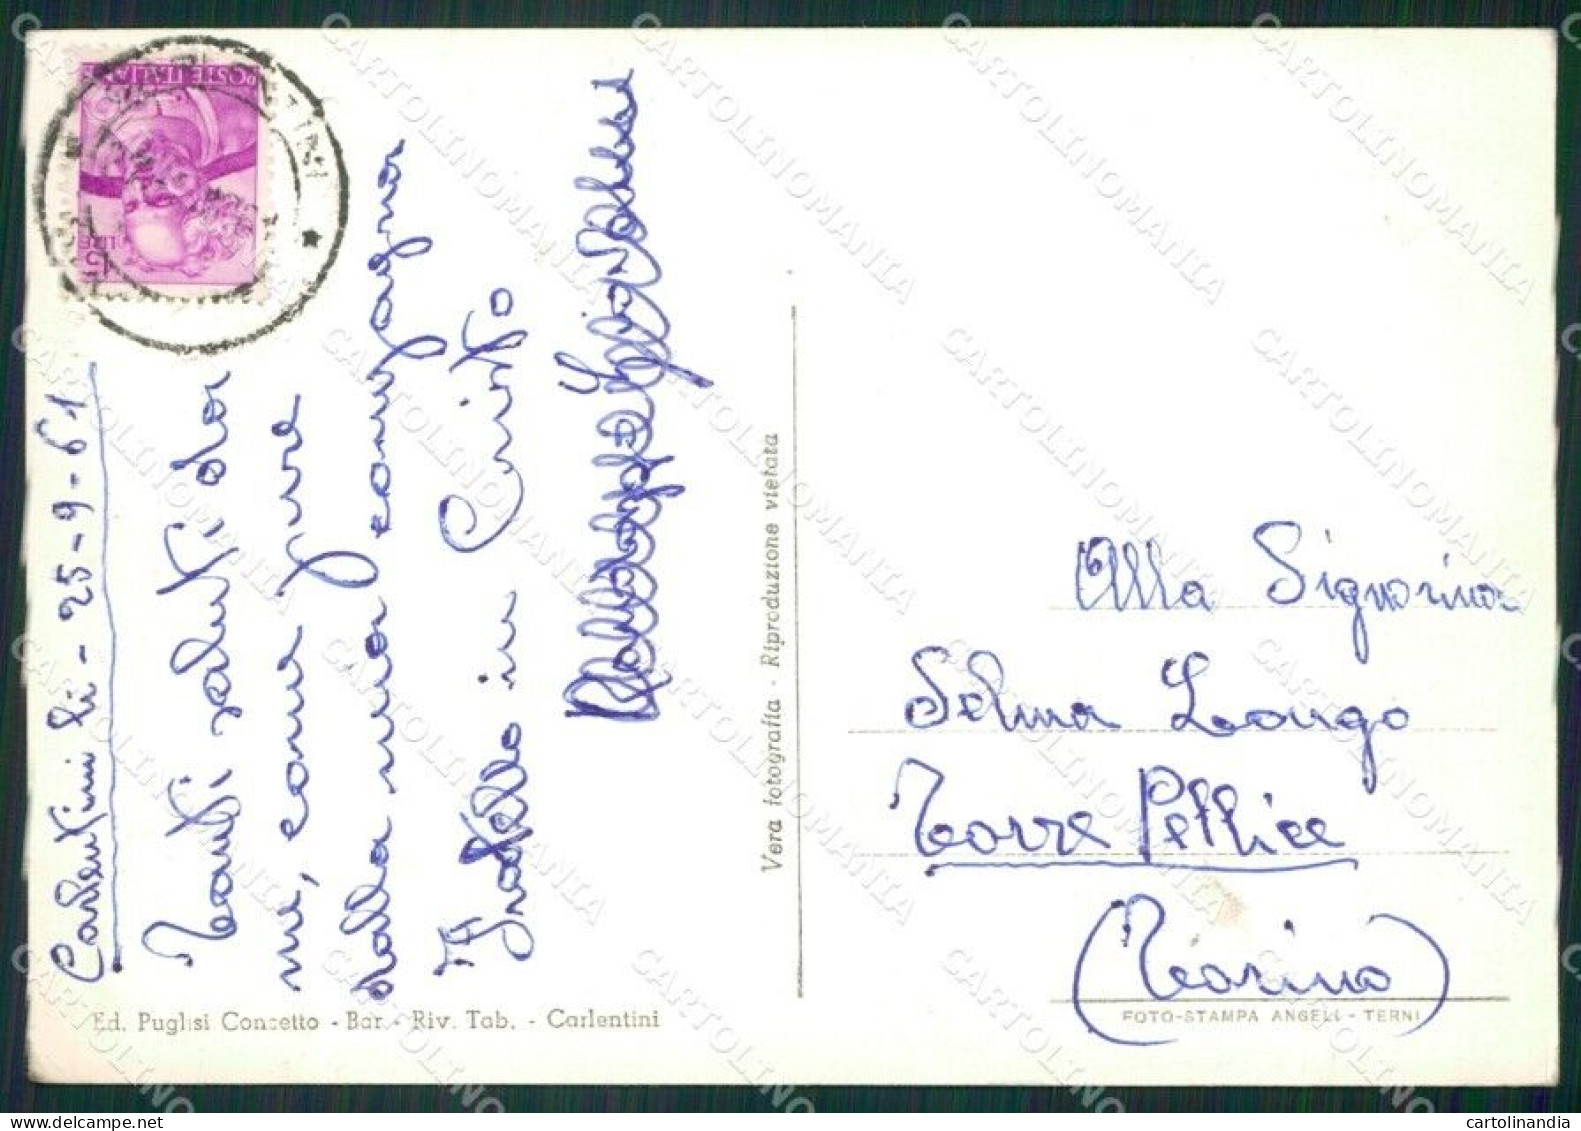 Carlentini li - 25-9-61
Tanti saluti da
me, come pure
dalla mia compagna
Il fratello in Cristo
Alla Signorina
Selma Longo
Torre Pellice
(Torino)
Vera fotografia - Riproduzione vietata
Ed. Puglisi Concetto - Bar - Riv. Tab. - Carlentini
FOTO-STAMPA ANGELI - TERNI
POSTE ITALIANE
LIRE 15
CARTOLINOMANIA
cartolinandia